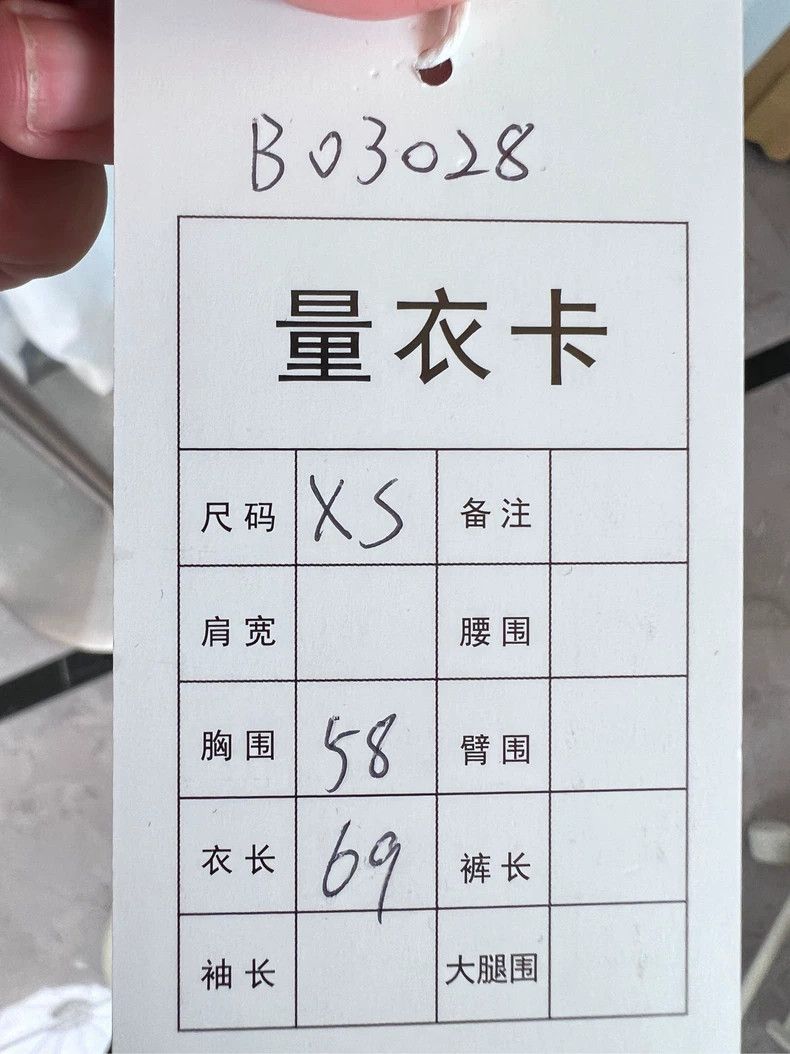 B03028
量衣卡
尺码 XS 备注
肩宽 腰围
胸围 58 臂围
衣长 69 裤长
袖长 大腿围